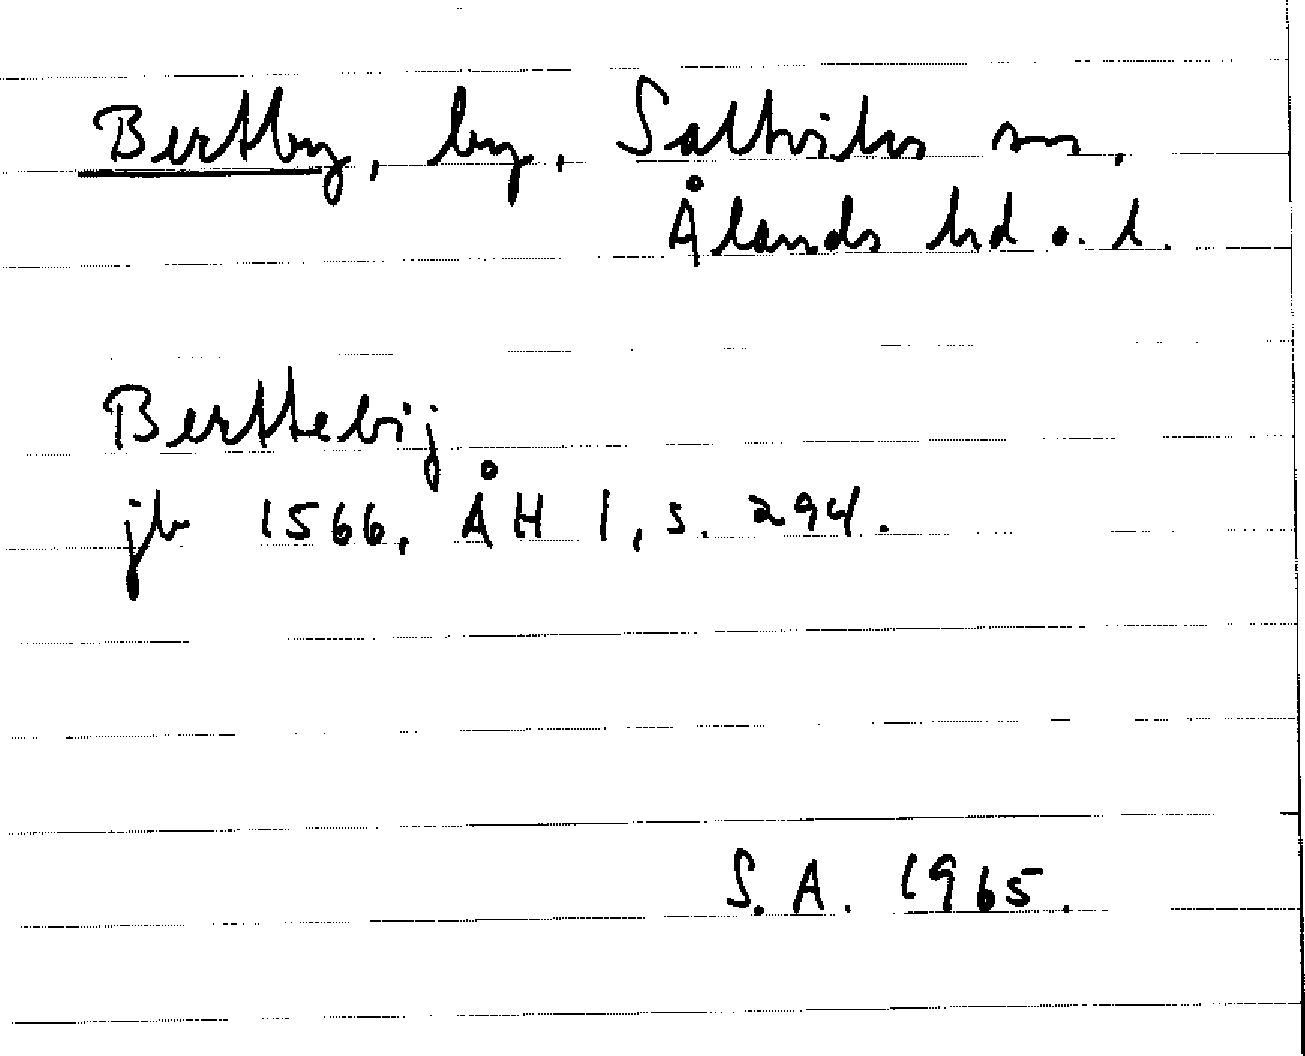 Bertby, by, Saltviks sn,
Ålands hd o. l.
Berttebij
jb 1566, ÅH 1, s. 294.
S. A. 1965.